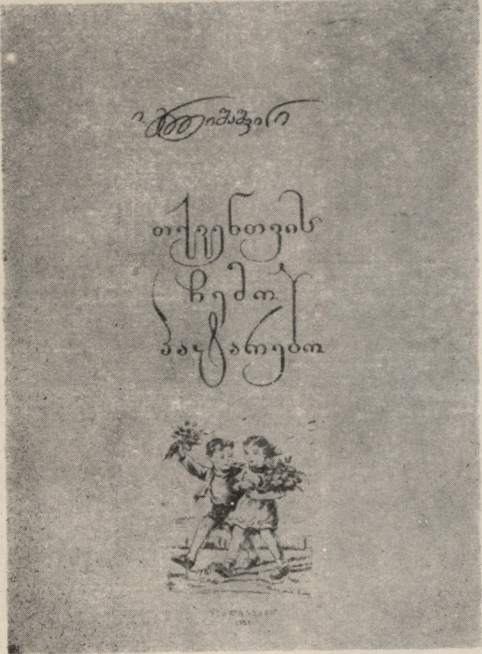 ი. გრიშაშვილი
თქვენთვის
ჩემო
პატარებო